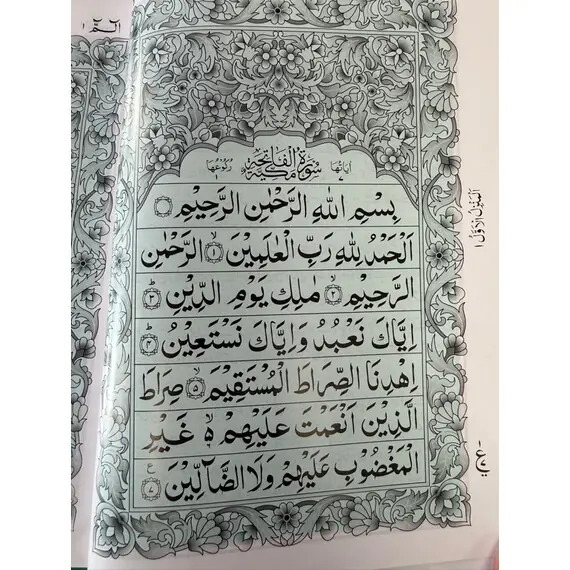 الٓمّٓ ١
اٰيَاتُهَا ٧ سُوْرَةُ الْفَاتِحَةِ مَكِّيَّةٌ رُكُوْعُهَا ١
بِسْمِ اللّٰهِ الرَّحْمٰنِ الرَّحِيْمِ
اَلْحَمْدُ لِلّٰهِ رَبِّ الْعٰلَمِيْنَ ۙ﴿١﴾ الرَّحْمٰنِ
الرَّحِيْمِ ۙ﴿٢﴾ مٰلِكِ يَوْمِ الدِّيْنِ ؕ﴿٣﴾
اِيَّاكَ نَعْبُدُ وَاِيَّاكَ نَسْتَعِيْنُ ؕ﴿٤﴾
اِهْدِنَا الصِّرَاطَ الْمُسْتَقِيْمَ ۙ﴿٥﴾ صِرَاطَ
الَّذِيْنَ اَنْعَمْتَ عَلَيْهِمْ ۙ۬ غَيْرِ
الْمَغْضُوْبِ عَلَيْهِمْ وَلَا الضَّآلِّيْنَ ﴿٧﴾ ع
اَلْمَنْزِلُ الْاَوَّلُ ١